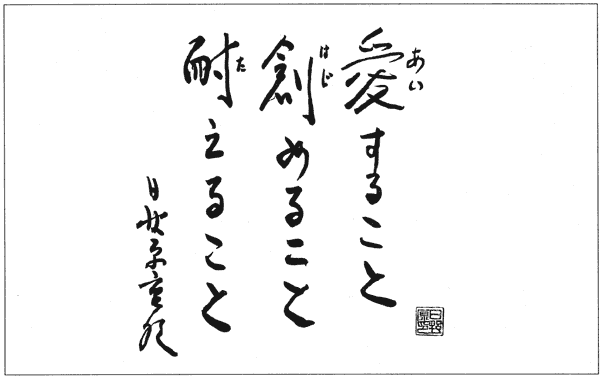 愛すること
あい
創めること
はじ
耐えること
た
日野原重明